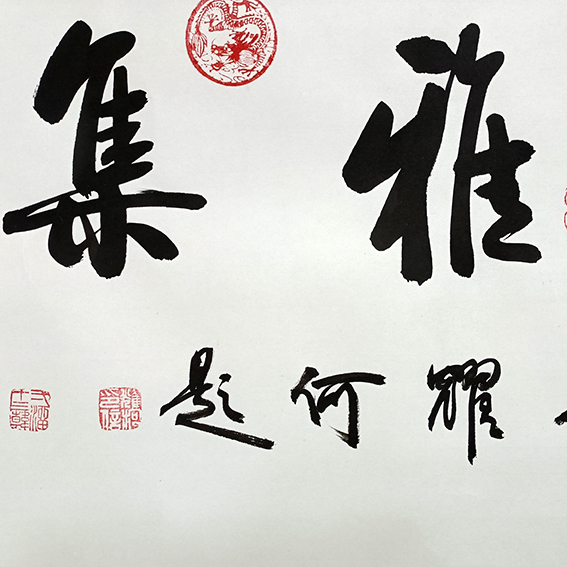 雅集
耀何題